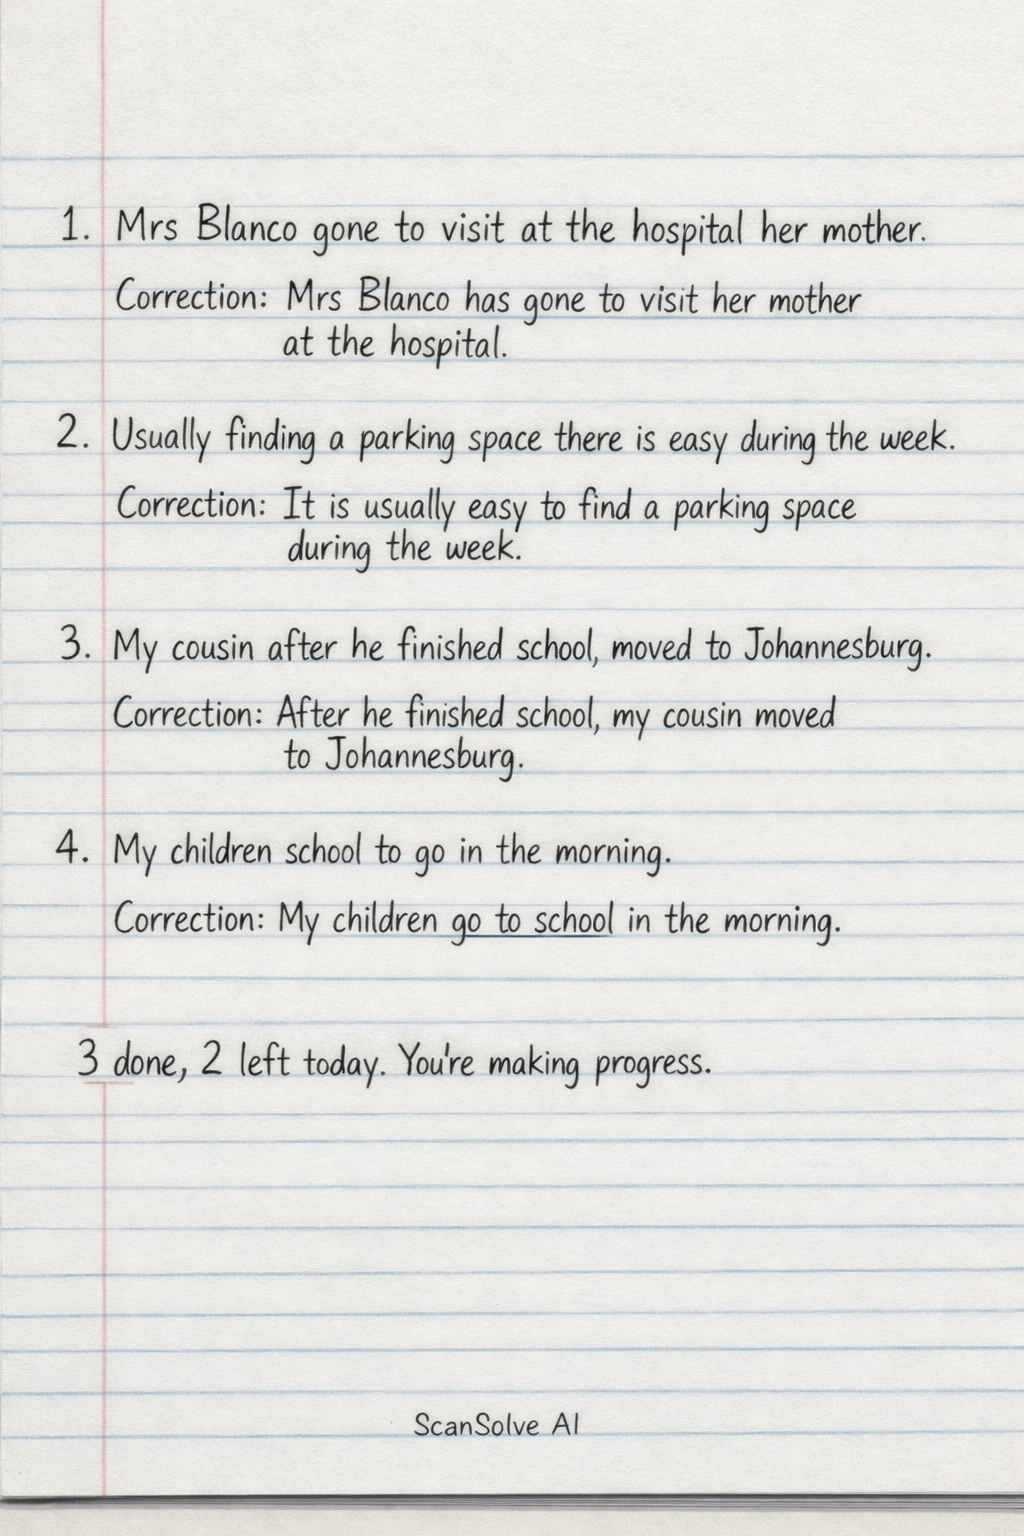 1. Mrs Blanco gone to visit at the hospital her mother.
Correction: Mrs Blanco has gone to visit her mother
at the hospital.
2. Usually finding a parking space there is easy during the week.
Correction: It is usually easy to find a parking space
during the week.
3. My cousin after he finished school, moved to Johannesburg.
Correction: After he finished school, my cousin moved
to Johannesburg.
4. My children school to go in the morning.
Correction: My children go to school in the morning.
3 done, 2 left today. You're making progress.
ScanSolve AI